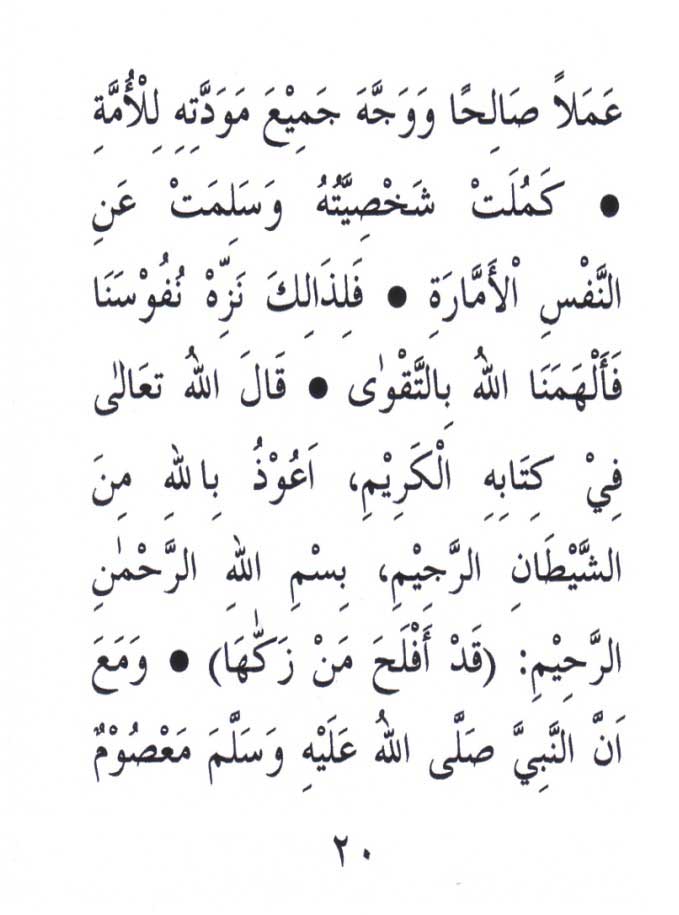 عَمَلاً صَالِحًا وَوَجَّهَ جَمِيْعَ مَوَدَّتِهِ لِلْأُمَّةِ
● كَمُلَتْ شَخْصِيَّتُهُ وَسَلِمَتْ عَنِ
النَّفْسِ اْلأَمَّارَةِ ● فَلِذَالِكَ نَزِّهْ نُفُوْسَنَا
فَأَلْهَمَنَا اللهُ بِالتَّقْوٰى ● قَالَ اللهُ تَعَالٰى
فِيْ كِتَابِهِ الْكَرِيْمِ، اَعُوْذُ بِاللهِ مِنَ
الشَّيْطَانِ الرَّجِيْمِ، بِسْمِ اللهِ الرَّحْمٰنِ
الرَّحِيْمِ: (قَدْ أَفْلَحَ مَنْ زَكّٰهَا) ● وَمَعَ
اَنَّ النَّبِيَّ صَلَّى اللهُ عَلَيْهِ وَسَلَّمَ مَعْصُوْمٌ
٢٠